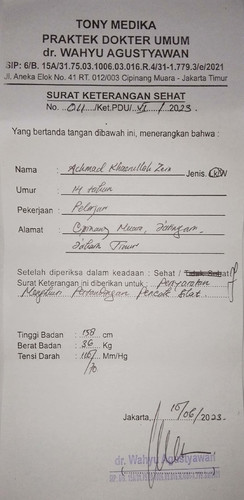 TONY MEDIKA
PRAKTEK DOKTER UMUM
dr. WAHYU AGUSTYAWAN
SIP: 6/B. 15A/31.75.03.1006.03.016.R.4/31-1.779.3/e/2021
Jl. Aneka Elok No. 41 RT. 012/003 Cipinang Muara - Jakarta Timur
SURAT KETERANGAN SEHAT
No. 04 /Ket.PDU/ VI / 2023.
Yang bertanda tangan dibawah ini, menerangkan bahwa :
Nama : Achmad Khaerullah Jenis.
Umur : 14 tahun
Pekerjaan : Pelajar
Alamat : Cipinang Muara, Jatinegara,
Jakarta Timur
Setelah diperiksa dalam keadaan : Sehat / Tidak Sehat
Surat Keterangan ini diberikan untuk : Persyaratan
Mengikuti Pertandingan Pencak Silat.
Tinggi Badan : 138 cm
Berat Badan : 36 Kg
Tensi Darah : Mm/Hg
Jakarta, 10/06/2023.
dr. Wahyu Agustyawan